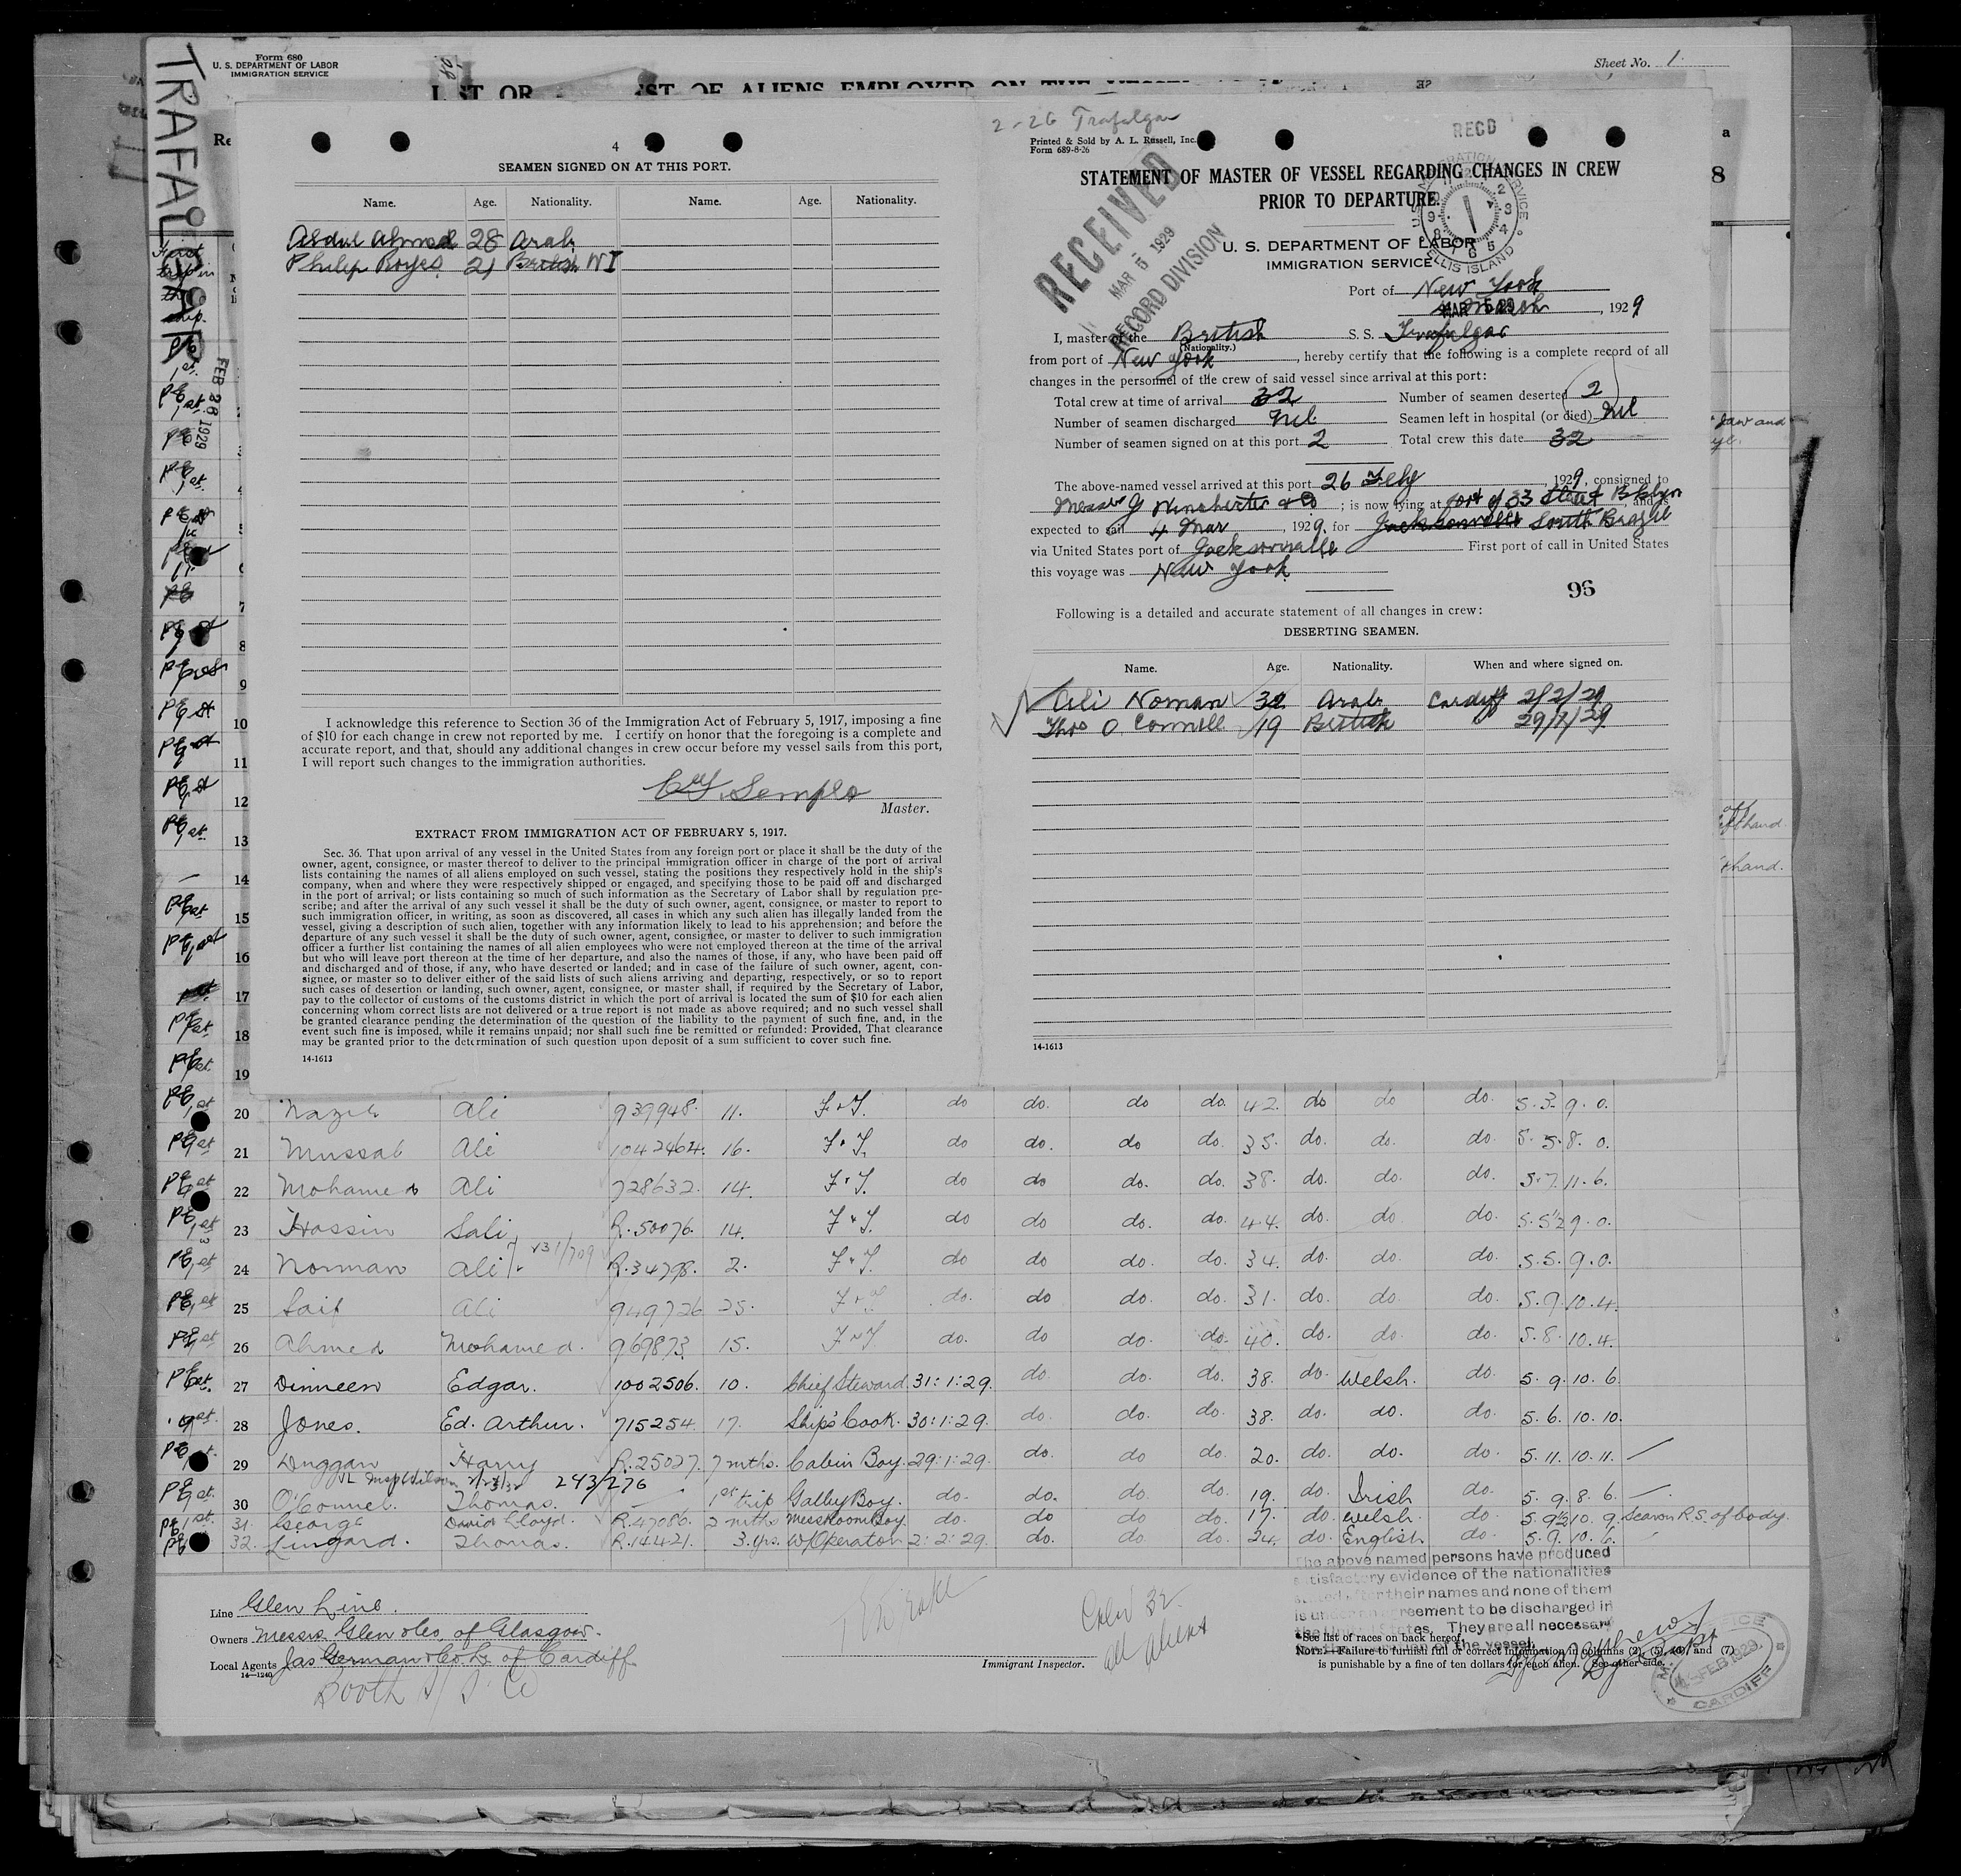 TRAFALGAR
Form 680
U. S. DEPARTMENT OF LABOR
IMMIGRATION SERVICE
Sheet No. 1
FEB 26 1929
4
SEAMEN SIGNED ON AT THIS PORT.
Name. Age. Nationality. Name. Age. Nationality.
Abdul Ahmed 28 Arab
Philip Boyes 21 British W I
I acknowledge this reference to Section 36 of the Immigration Act of February 5, 1917, imposing a fine
of $10 for each change in crew not reported by me. I certify on honor that the foregoing is a complete and
accurate report, and that, should any additional changes in crew occur before my vessel sails from this port,
I will report such changes to the immigration authorities.
Semple
Master.
EXTRACT FROM IMMIGRATION ACT OF FEBRUARY 5, 1917.
Sec. 36. That upon arrival of any vessel in the United States from any foreign port or place it shall be the duty of the
owner, agent, consignee, or master thereof to deliver to the principal immigration officer in charge of the port of arrival
lists containing the names of all aliens employed on such vessel, stating the positions they respectively hold in the ship's
company, when and where they were respectively shipped or engaged, and specifying those to be paid off and discharged
in the port of arrival; or lists containing so much of such information as the Secretary of Labor shall by regulation pre-
scribe; and after the arrival of any such vessel it shall be the duty of such owner, agent, consignee, or master to report to
such immigration officer, in writing, as soon as discovered, all cases in which any such alien has illegally landed from the
vessel, giving a description of such alien, together with any information likely to lead to his apprehension; and before the
departure of any such vessel it shall be the duty of such owner, agent, consignee, or master to deliver to such immigration
officer a further list containing the names of all alien employees who were not employed thereon at the time of the arrival
but who will leave port thereon at the time of her departure, and also the names of those, if any, who have been paid off
and discharged and of those, if any, who have deserted or landed; and in case of the failure of such owner, agent, con-
signee, or master so to deliver either of the said lists of such aliens arriving and departing, respectively, or so to report
such cases of desertion or landing, such owner, agent, consignee, or master shall, if required by the Secretary of Labor,
pay to the collector of customs of the customs district in which the port of arrival is located the sum of $10 for each alien
concerning whom correct lists are not delivered or a true report is not made as above required; and no such vessel shall
be granted clearance pending the determination of the question of the liability to the payment of such fine, and, in the
event such fine is imposed, while it remains unpaid; nor shall such fine be remitted or refunded: Provided, That clearance
may be granted prior to the determination of such question upon deposit of a sum sufficient to cover such fine.
14-1613
2-26 Trafalgar
Printed & Sold by A. L. Russell, Inc.
Form 689-8-26
RECD
STATEMENT OF MASTER OF VESSEL REGARDING CHANGES IN CREW
PRIOR TO DEPARTURE.
RECEIVED
MAR 5 1929
RECORD DIVISION
U. S. DEPARTMENT OF LABOR
IMMIGRATION SERVICE
ELLIS ISLAND
Port of New York
4 March, 1929
I, master of the British S. S. Trafalgar
(Nationality.)
from port of New York, hereby certify that the following is a complete record of all
changes in the personnel of the crew of said vessel since arrival at this port:
Total crew at time of arrival 32 Number of seamen deserted 2
Number of seamen discharged Nil Seamen left in hospital (or died) Nil
Number of seamen signed on at this port 2 Total crew this date 32
The above-named vessel arrived at this port 26 Feby 1929, consigned to
Messrs J Winchester & Co; is now lying at foot of 33 Street Bklyn, and is
expected to sail 4 Mar, 1929, for Jacksonville South Brazil
via United States port of Jacksonville First port of call in United States
this voyage was New York
95
Following is a detailed and accurate statement of all changes in crew:
DESERTING SEAMEN.
Name. Age. Nationality. When and where signed on.
Ali Noman 32 Arab Cardiff 2/2/29
Thos O Connell 19 British 29/1/29
14-1613
20 Nazir Ali 939948. 11. F & T. do do. do do. 42. do do do. 5.3. 9.0.
21 Mussab Ali 1042464. 16. F & T. do do. do do. 35. do. do. do. 5.5. 8.0.
22 Mohamed Ali 728632. 14. F & T. do do do. do. 38. do. do. do. 5.7. 11.6.
23 Hassin Sali R.50076. 14. F & T. do do do. do. 44. do. do do. 5.5½ 9.0.
24 Norman Ali R.34798. 2. F & T. do do do. do. 34. do. do. do. 5.5. 9.0.
25 Saif Ali 949726 25. F & T. do. do do. do. 31. do. do. do. 5.9. 10.4.
26 Ahmed Mohamed. 969873. 15. F & T. do. do do. do. 40. do. do. do. 5.8. 10.4.
27 Dinneen Edgar. 1002506. 10. Chief Steward. 31:1:29. do. do. do. 38. do. Welsh. do. 5.9. 10.6.
28 Jones. Ed. Arthur. 715254. 17. Ship's Cook. 30:1:29. do. do. do. 38. do. do. do. 5.6. 10.10.
29 Duggan Harry R.25027. 7 mths. Cabin Boy. 29:1:29. do. do do. 20. do. do. do. 5.11. 10.11.
243/276
30 O'Connel. Thomas. — 1st trip Galley Boy. do. do. do. do. 19. do. Irish do. 5.9. 8.6.
31. George David Lloyd. R.47086. 2 mths Messroom Boy. do. do do do. 17. do. Welsh. do. 5.9½ 10.9. Scar on R.S. of body.
32. Lingard. Thomas. R.14421. 3. yrs. W/Operator 2:2:29. do. do. do. 24. do. English do. 5.9. 10.6.
The above named persons have produced
satisfactory evidence of the nationalities
stated after their names and none of them
is under agreement to be discharged in
the United States. They are all necessary
Line Glen Line.
Owners Messrs. Glen & Co, of Glasgow.
Local Agents Jas German & Co Ld of Cardiff
14-1240
Booth S/S Co
Immigrant Inspector.
Crew 32
all aliens
*See list of races on back hereof.
NOTE.—Failure to furnish full or correct information in columns (2), (3), (4), and (7)
is punishable by a fine of ten dollars for each alien. See other side.
FEB 1929
CARDIFF